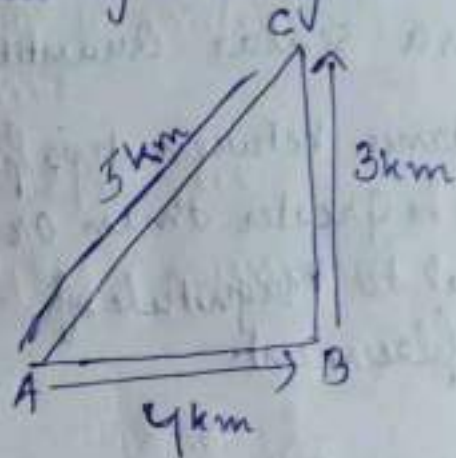 C
5km
3km
A
B
4km